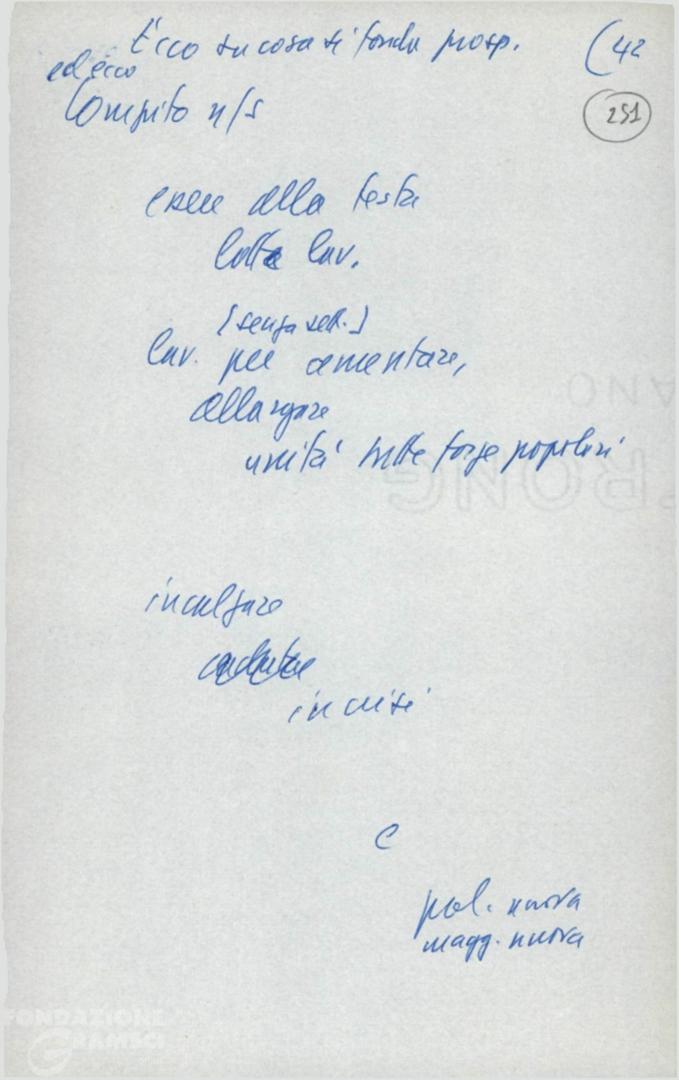 Ecco su cosa si fonda prosp. (42
ed ecco
Compito n/s
251
essere alla testa
lotte lav.
[senza sett.]
lav. per aumentare,
allargare
unità tutte forze popolari
incalzare
in crisi
e
pol. nuova
magg. nuova
FONDAZIONE
GRAMSCI